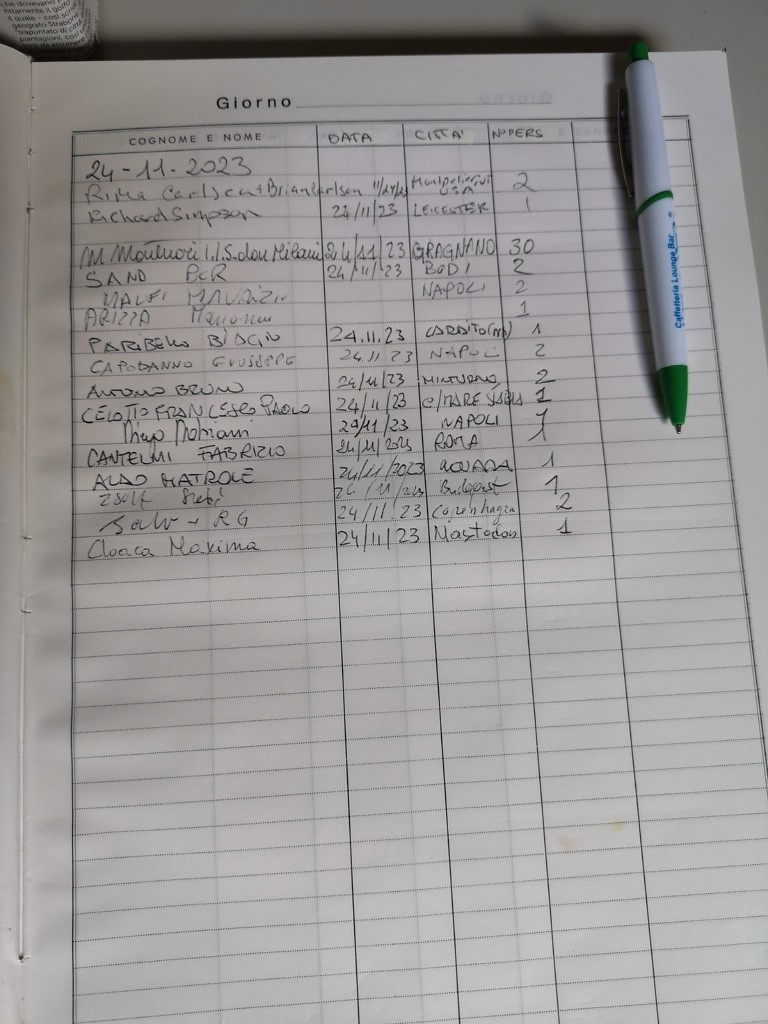 che dovevano
fittamente il golfo
il quale - così scri
geografo Strabone
trapuntato di città
piantagioni, così
Giorno
COGNOME E NOME DATA CITTA' N°PERS
24-11-2023
Rima Carlsen+Brian Carlsen USA 2
Richard Simpson 24/11/23 LEICESTER 1
I.I.S. don Milani 24/11/23 GRAGNANO 30
SAND 24/11/23 2
MALFI MAURIZIO NAPOLI 2
ARIZZA 1
PARIBELLO BIAGIO 24.11.23 CARDITO (NA) 1
CAPODANNO GIUSEPPE 24 11 23 NAPOLI 2
ANTONIO BRUNO 24/11/23 MINTURNO 2
CELOTTO FRANCESCO PAOLO 24/11/23 C/MARE STABIA 1
24/11/23 NAPOLI 1
CANTELMI FABRIZIO 24/11/2023 ROMA 1
ALDO MATROLE 24/11/2023 1
Zsolt 24/11/23 Budapest 1
24/11/23 Copenhagen 2
Cloaca Maxima 24/11/23 Mastodon 1
Caffetteria Lounge Bar